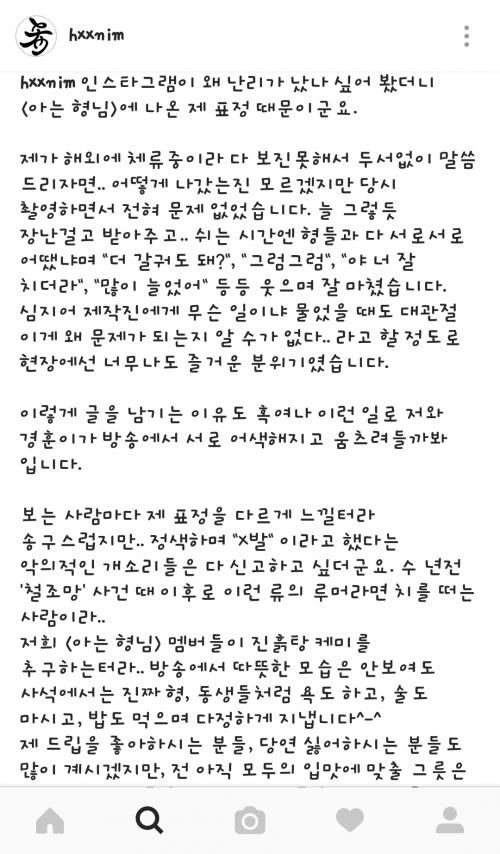 hxxnim
hxxnim 인스타그램이 왜 난리가 났나 싶어 봤더니
<아는 형님>에 나온 제 표정 때문이군요.
제가 해외에 체류중이라 다 보진못해서 두서없이 말씀
드리자면.. 어떻게 나갔는진 모르겠지만 당시
촬영하면서 전혀 문제 없었습니다. 늘 그렇듯
장난걸고 받아주고.. 쉬는 시간엔 형들과 다 서로서로
어땠냐며 "더 갈궈도 돼?", "그럼그럼", "야 너 잘
치더라", "많이 늘었어" 등등 웃으며 잘 마쳤습니다.
심지어 제작진에게 무슨 일이냐 물었을 때도 대관절
이게 왜 문제가 되는지 알 수가 없다.. 라고 할 정도로
현장에선 너무나도 즐거운 분위기였습니다.
이렇게 글을 남기는 이유도 혹여나 이런 일로 저와
경훈이가 방송에서 서로 어색해지고 움츠려들까봐
입니다.
보는 사람마다 제 표정을 다르게 느낄터라
송구스럽지만.. 정색하며 "X발" 이라고 했다는
악의적인 개소리들은 다 신고하고 싶더군요. 수 년전
'철조망' 사건 때 이후로 이런 류의 루머라면 치를 떠는
사람이라..
저희 <아는 형님> 멤버들이 진흙탕 케미를
추구하는터라.. 방송에서 따뜻한 모습은 안보여도
사석에서는 진짜 형, 동생들처럼 욕도 하고, 술도
마시고, 밥도 먹으며 다정하게 지냅니다^-^
제 드립을 좋아하시는 분들, 당연 싫어하시는 분들도
많이 계시겠지만, 전 아직 모두의 입맛에 맞출 그릇은